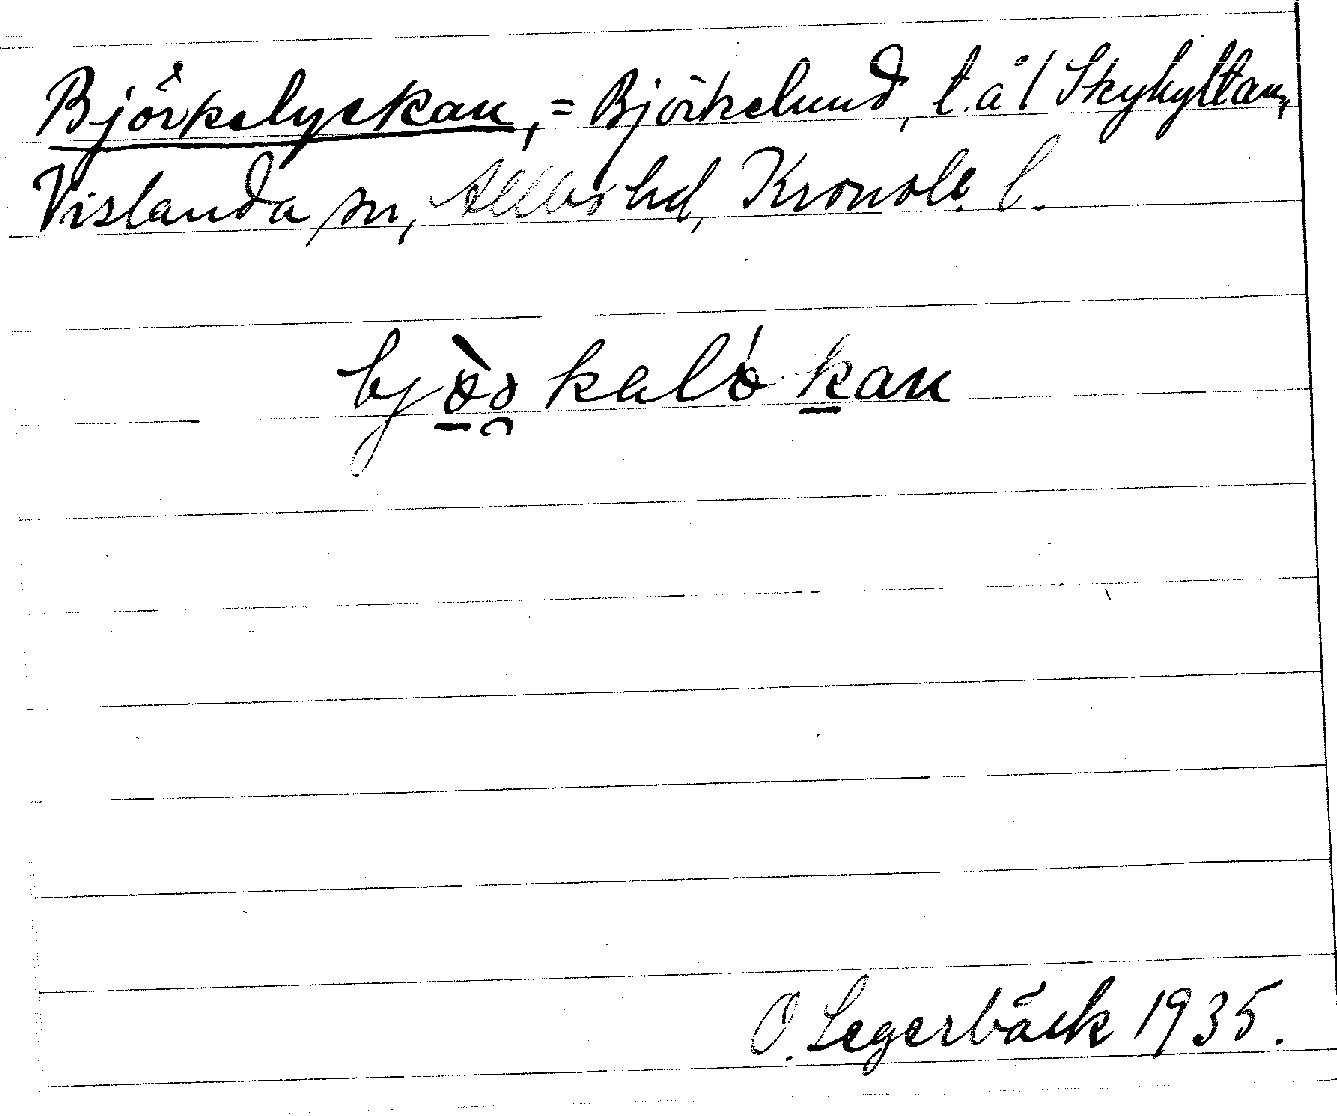 Björkelyckan, = Björkelund, t. å 1 Skyhyltan,
Vislanda sn, Allbo hd, Kronob. l.
bjòskaló kan
O. Segerbäck 1935.